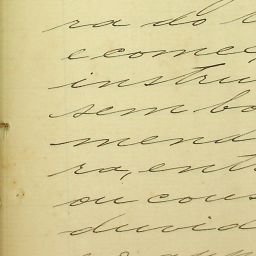 ra do
e come
instru
sem bo
mend
ra, ent
ou cons
duvid